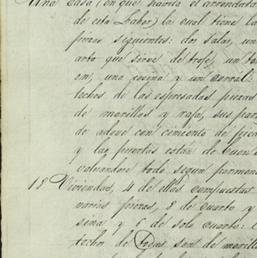 Una casa (en que habita el arrendata
de esta Labor) la cual tiene la
piezas siguientes: dos salas, un
arto que sirve de troje, un
on, una cocina y un corral:
techos de las espresadas piezas
de morillos y raja, sus par
de adove con cimiento de
y las puertas estan de buen
valuandose todo segun
18 Viviendas, 4 de ellas compuestas
varias piezas, 8 de cuarto y
sina y 6 de solo cuarto:
techos de todas son de morillo